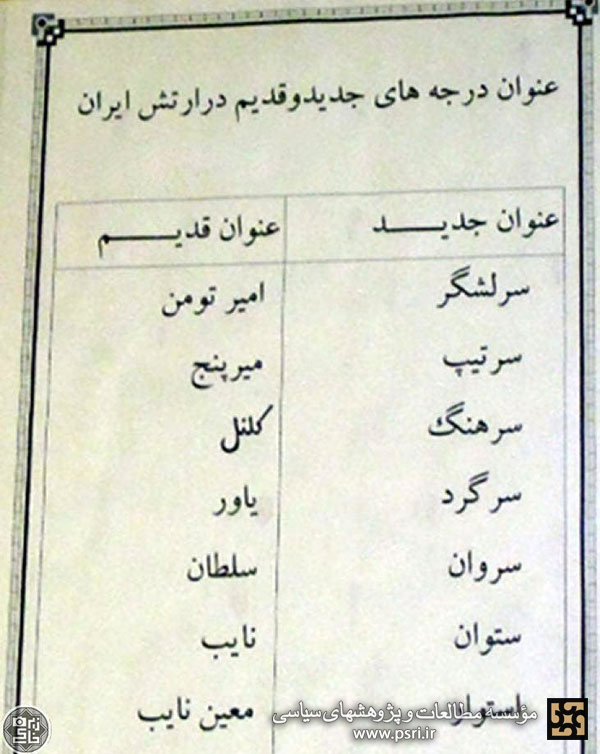 عنوان درجه های جدیدوقدیم درارتش ایران
عنوان جدیـــــد عنوان قدیـــــم
سرلشگر امیر تومن
سرتیپ میرپنج
سرهنگ کلنل
سرگرد یاور
سروان سلطان
ستوان نایب
استوار معین نایب
مؤسسه مطالعات و پژوهشهای سیاسی
www.psri.ir